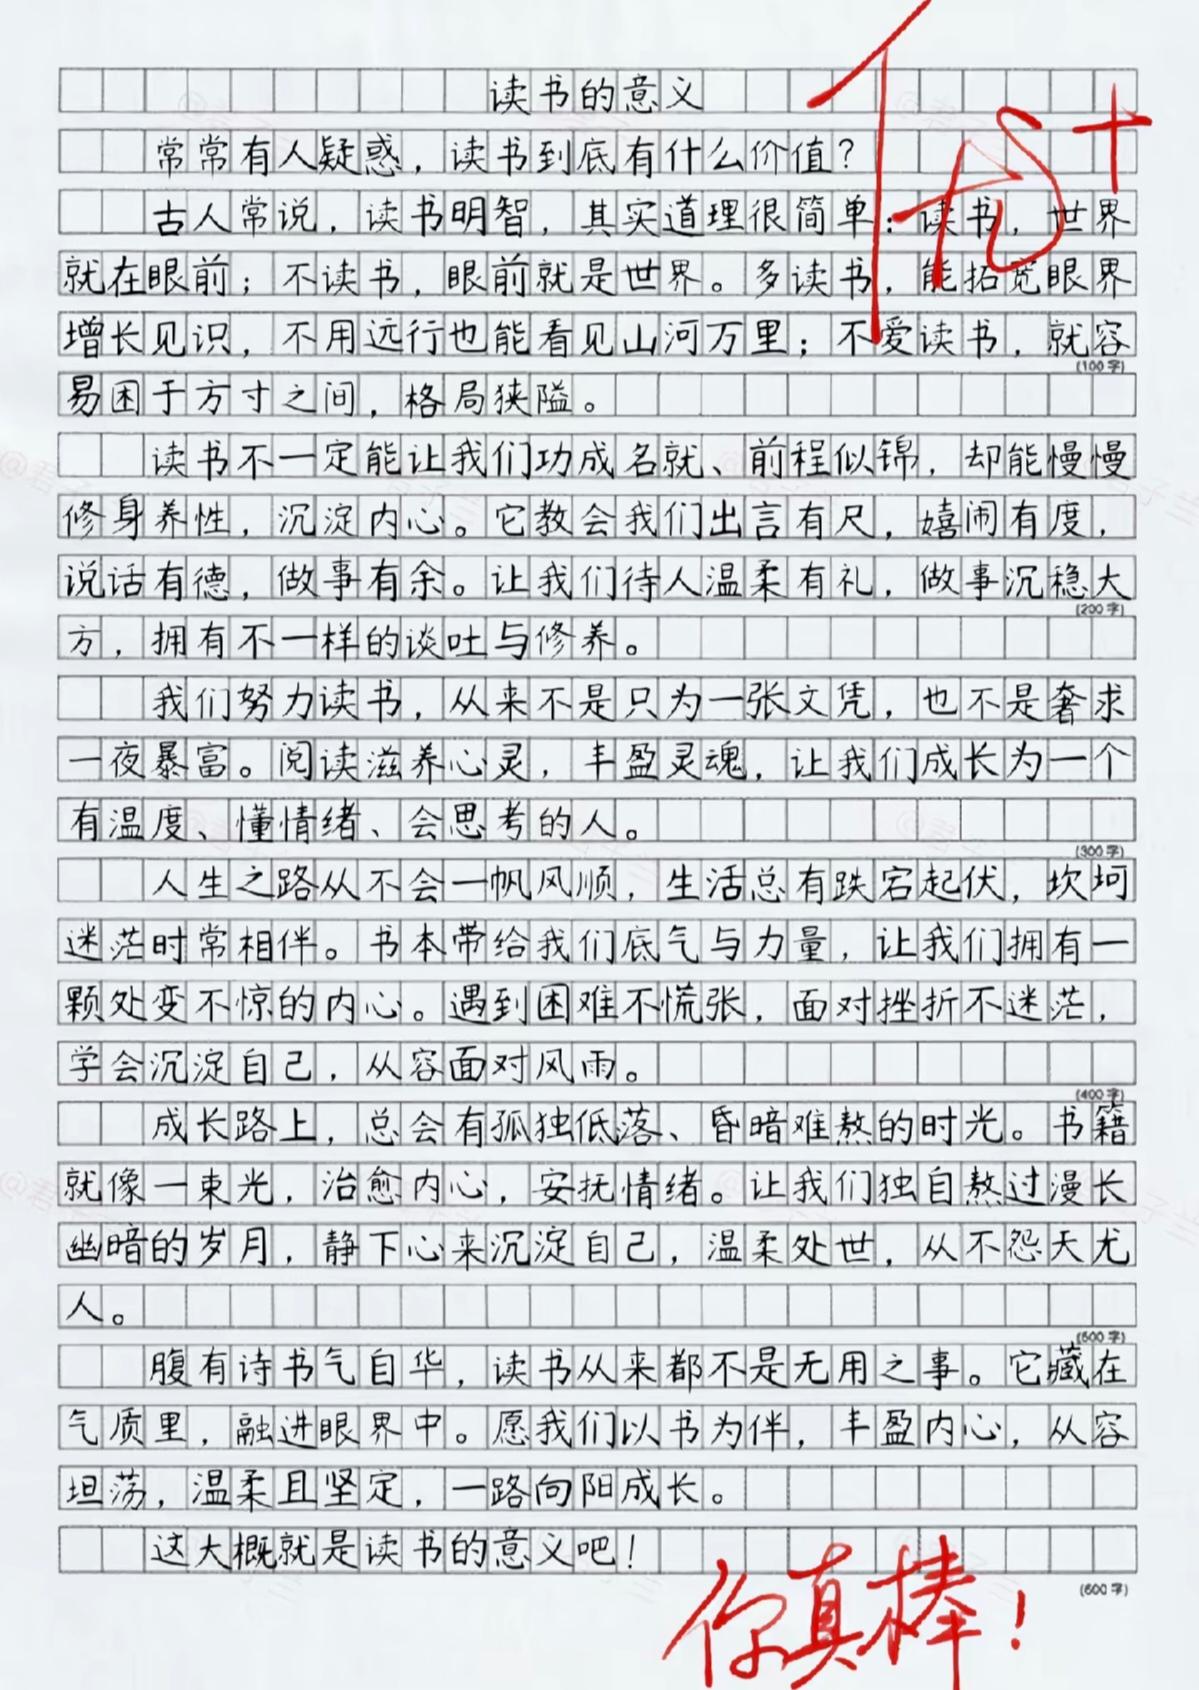 读书的意义
常常有人疑惑，读书到底有什么价值？
古人常说，读书明智，其实道理很简单：读书，世界
就在眼前；不读书，眼前就是世界。多读书，能拓宽眼界
增长见识，不用远行也能看见山河万里；不爱读书，就容
(100字)
易困于方寸之间，格局狭隘。
读书不一定能让我们功成名就、前程似锦，却能慢慢
修身养性，沉淀内心。它教会我们出言有尺，嬉闹有度，
说话有德，做事有余。让我们待人温柔有礼，做事沉稳大
(200字)
方，拥有不一样的谈吐与修养。
我们努力读书，从来不是只为一张文凭，也不是奢求
一夜暴富。阅读滋养心灵，丰盈灵魂，让我们成长为一个
有温度、懂情绪、会思考的人。
(300字)
人生之路从不会一帆风顺，生活总有跌宕起伏，坎坷
迷茫时常相伴。书本带给我们底气与力量，让我们拥有一
颗处变不惊的内心。遇到困难不慌张，面对挫折不迷茫，
学会沉淀自己，从容面对风雨。
(400字)
成长路上，总会有孤独低落、昏暗难熬的时光。书籍
就像一束光，治愈内心，安抚情绪。让我们独自熬过漫长
幽暗的岁月，静下心来沉淀自己，温柔处世，从不怨天尤
人。
(500字)
腹有诗书气自华，读书从来都不是无用之事。它藏在
气质里，融进眼界中。愿我们以书为伴，丰盈内心，从容
坦荡，温柔且坚定，一路向阳成长。
这大概就是读书的意义吧！
(600字)
你真棒！